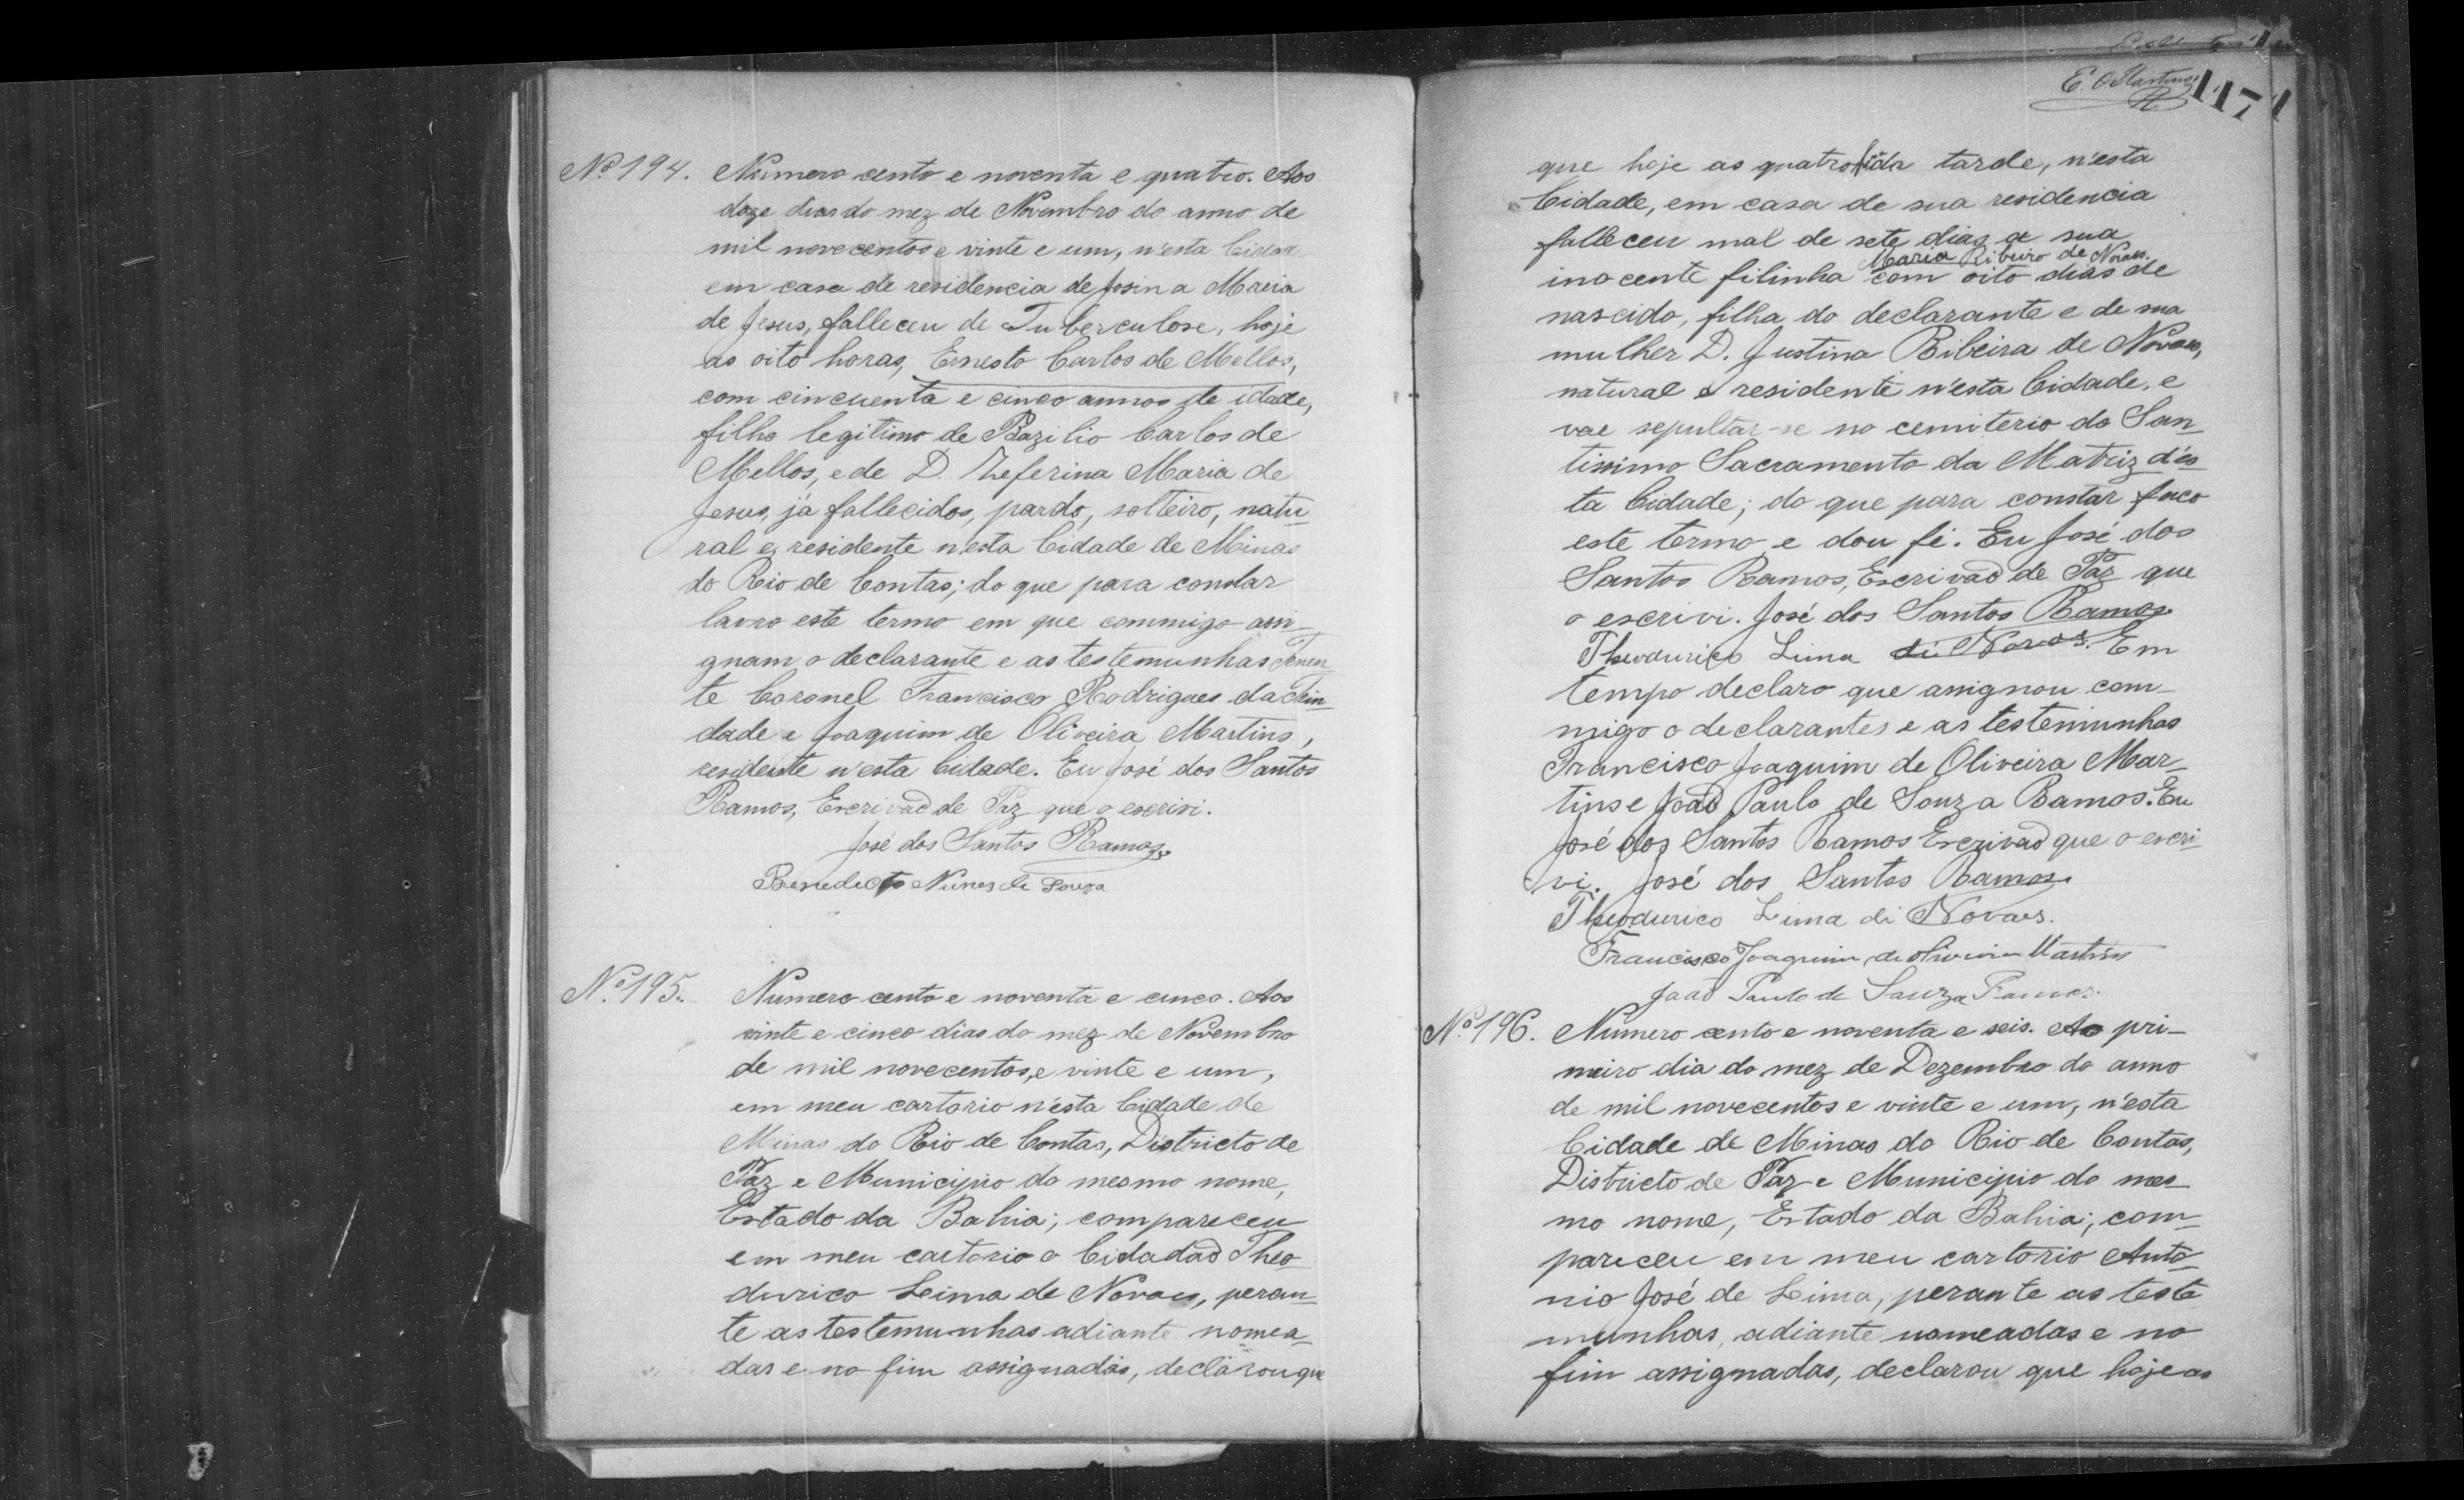 Nº 194. Numero cento e noventa e quatro. Aos
doze dias do mez de Novembro do anno de
mil novecentos e vinte e um, n'esta Cidade
em casa de residencia de Josina Maria
de Jesus, falleceu de Tuberculose, hoje
as oito horas, Ernesto Carlos de Mellos,
com cincuenta e cinco annos de idade,
filho legitimo de Bazilio Carlos de
Mellos, e de D. Zeferina Maria de
Jesus, já fallecidos, pardo, solteiro, natu-
ral e residente n'esta Cidade de Minas
do Rio de Contas; do que para constar
lavro este termo em que commigo assi-
gnam o declarante e as testemunhas Tenen-
te Coronel Francisco Rodrigues da Trin-
dade e Joaquim de Oliveira Martins,
residente n'esta Cidade. Eu José dos Santos
Ramos, Escrivaõ de Paz que o escrivi.
José dos Santos Ramos
Benedicto Nunes de Souza
Nº 195. Numero cento e noventa e cinco. Aos
vinte e cinco dias do mez de Novembro
de mil novecentos, e vinte e um,
em meu cartorio n'esta Cidade de
Minas do Rio de Contas, Districto de
Paz e Municipio do mesmo nome,
Estado da Bahia; compareceu
em meu cartorio o Cidadaõ Theo-
durico Leima de Novaes, peran-
te as testemunhas adiante nomea-
das e no fim assignadas, declarou que
E. O. Martins
117
que hoje as quatro da tarde, n'esta
Cidade, em casa de sua residencia
falleceu mal de sete dias a sua
Maria Ribeiro de Novaes.
inocente filinha com oito dias de
nascido, filha do declarante e de sua
mulher D. Justina Ribeira de Novaes,
natural e residente n'esta Cidade, e
vae sepultar-se no cemiterio do San-
tissimo Sacramento da Matriz d'es-
ta Cidade; do que para constar faco
este termo e dou fé. Eu José dos
Santos Ramos, Escrivaõ de Paz que
o escrivi. José dos Santos Ramos
Theodurico Lima di Novaes. Em
tempo declaro que assignou com-
migo o declarantes e as testemunhas
Francisco Joaquim de Oliveira Mar-
tins e Joaõ Paulo de Souza Ramos. Eu
José dos Santos Ramos Escrivaõ que o escri-
vi. José dos Santos Ramos
Theodurico Lima di Novaes.
Francisco Joaquim de Oliveira Martins
Joaõ Paulo de Souza Ramos.
Nº 196. Numero cento e noventa e seis. Ao pri-
meiro dia do mez de Dezembro do anno
de mil novecentos e vinte e um, n'esta
Cidade de Minas do Rio de Contas,
Districto de Paz e Municipio do mes-
mo nome, Estado da Bahia; com-
pareceu em meu cartorio Anto-
nio José de Lima, perante as teste
munhas, adiante nomeadas e no
fim assignadas, declarou que hoje as